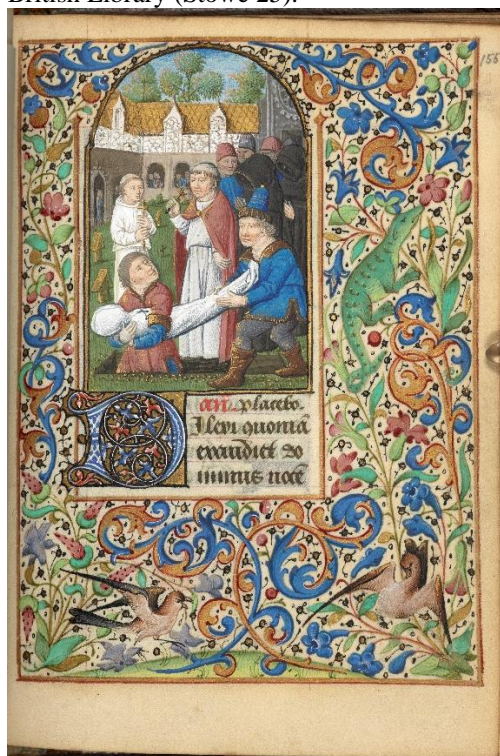 British Library (Stowe 25).
155
añ. placebo.
Dilexi quoniā
exaudiet do
minus uocē